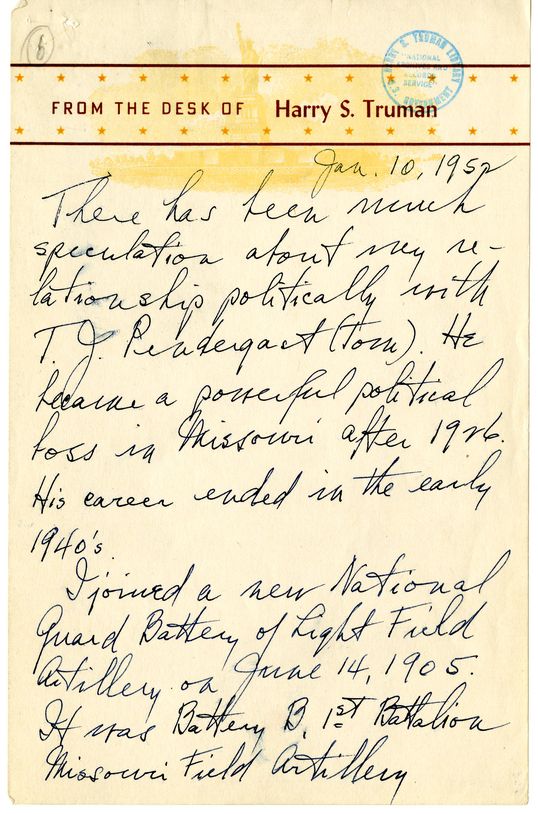 6
HARRY S. TRUMAN LIBRARY
NATIONAL
ARCHIVES AND
RECORDS
SERVICE
U.S. GOVERNMENT
FROM THE DESK OF Harry S. Truman
Jan. 10, 1952
There has been much
speculation about my re-
lationship politically with
T. J. Pendergast (Tom). He
became a powerful political
boss in Missouri after 1926.
His career ended in the early
1940's.
I joined a new National
Guard Battery of Light Field
Artillery on June 14, 1905.
It was Battery B, 1st Battalion
Missouri Field Artillery